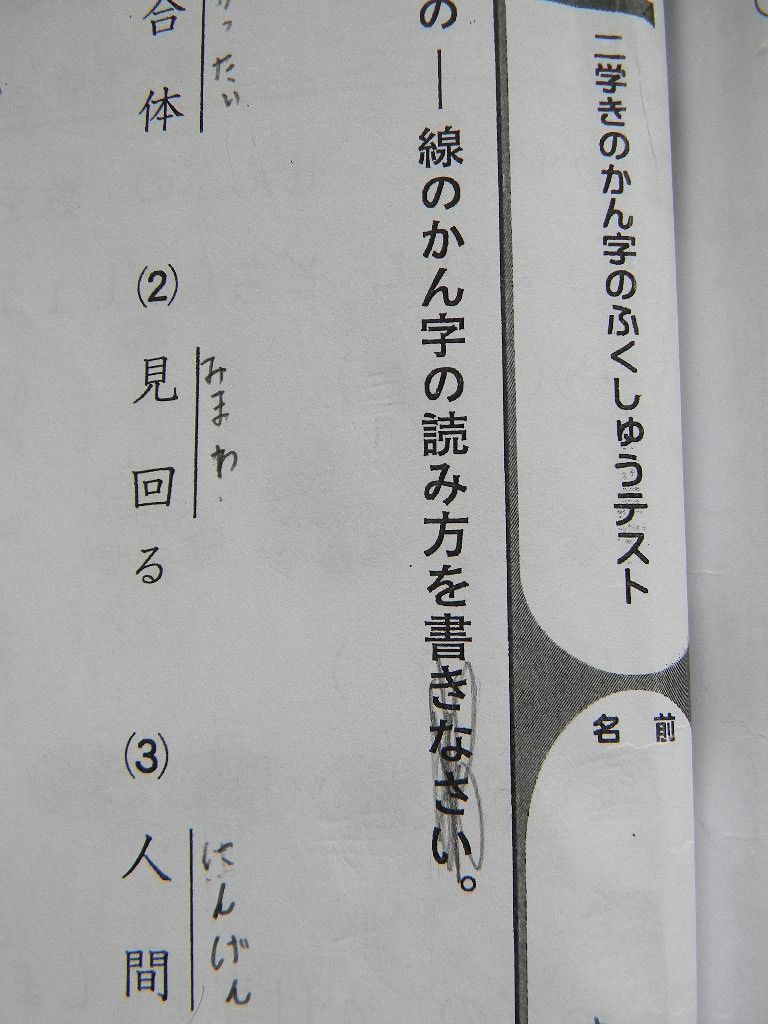 二学きのかん字のふくしゅうテスト
名前
の―線のかん字の読み方を書きなさい。
ったい
合体
みまわ
(2) 見回る
にんげん
(3) 人間